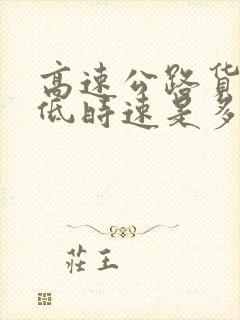 高速公路货
低时速是多
莊王